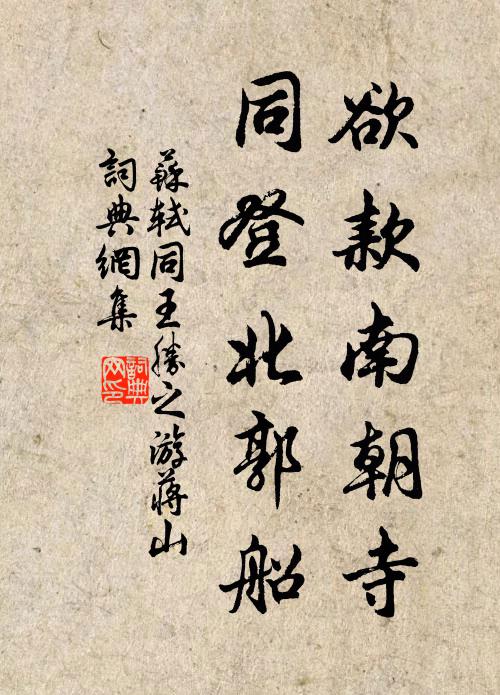 欲款南朝寺
同登北郭船
蘇軾同王勝之游蔣山
詞典網集
詞典
网印